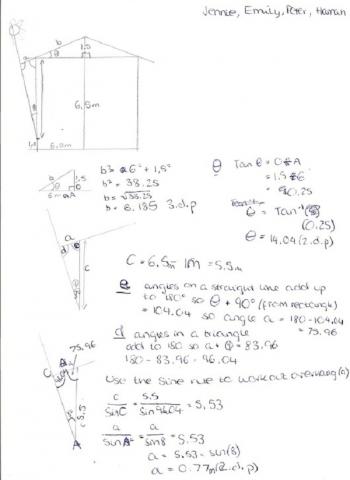 Jennie, Emily, Peter, Hannan
b
1.5
a
6.5m
6.0m
b² = 6² + 1.5²
b² = 38.25
b = √38.25
b = 6.185 3.d.p
b
1.5
θ
6m
A
θ Tan θ = O÷A
= 1.5÷6
= 0.25
θ = Tan⁻¹
(0.25)
θ = 14.04 (2.d.p)
a
d
c
C = 6.5m - 1m = 5.5m
angles on a straight line add up
to 180° so θ + 90° (from rectangle)
= 104.04 so angle a = 180 - 104.04
= 75.96
d angles in a triangle
add to 180 so a + = 83.96
180 - 83.96 = 96.04
75.96
C
5.5
A
Use the sine rule to work out overhang (a)
c/sinC = 5.5/sin96.04 = 5.53
a/sinA = a/sin8 = 5.53
a = 5.53 × sin(8)
a = 0.77m (2.d.p)